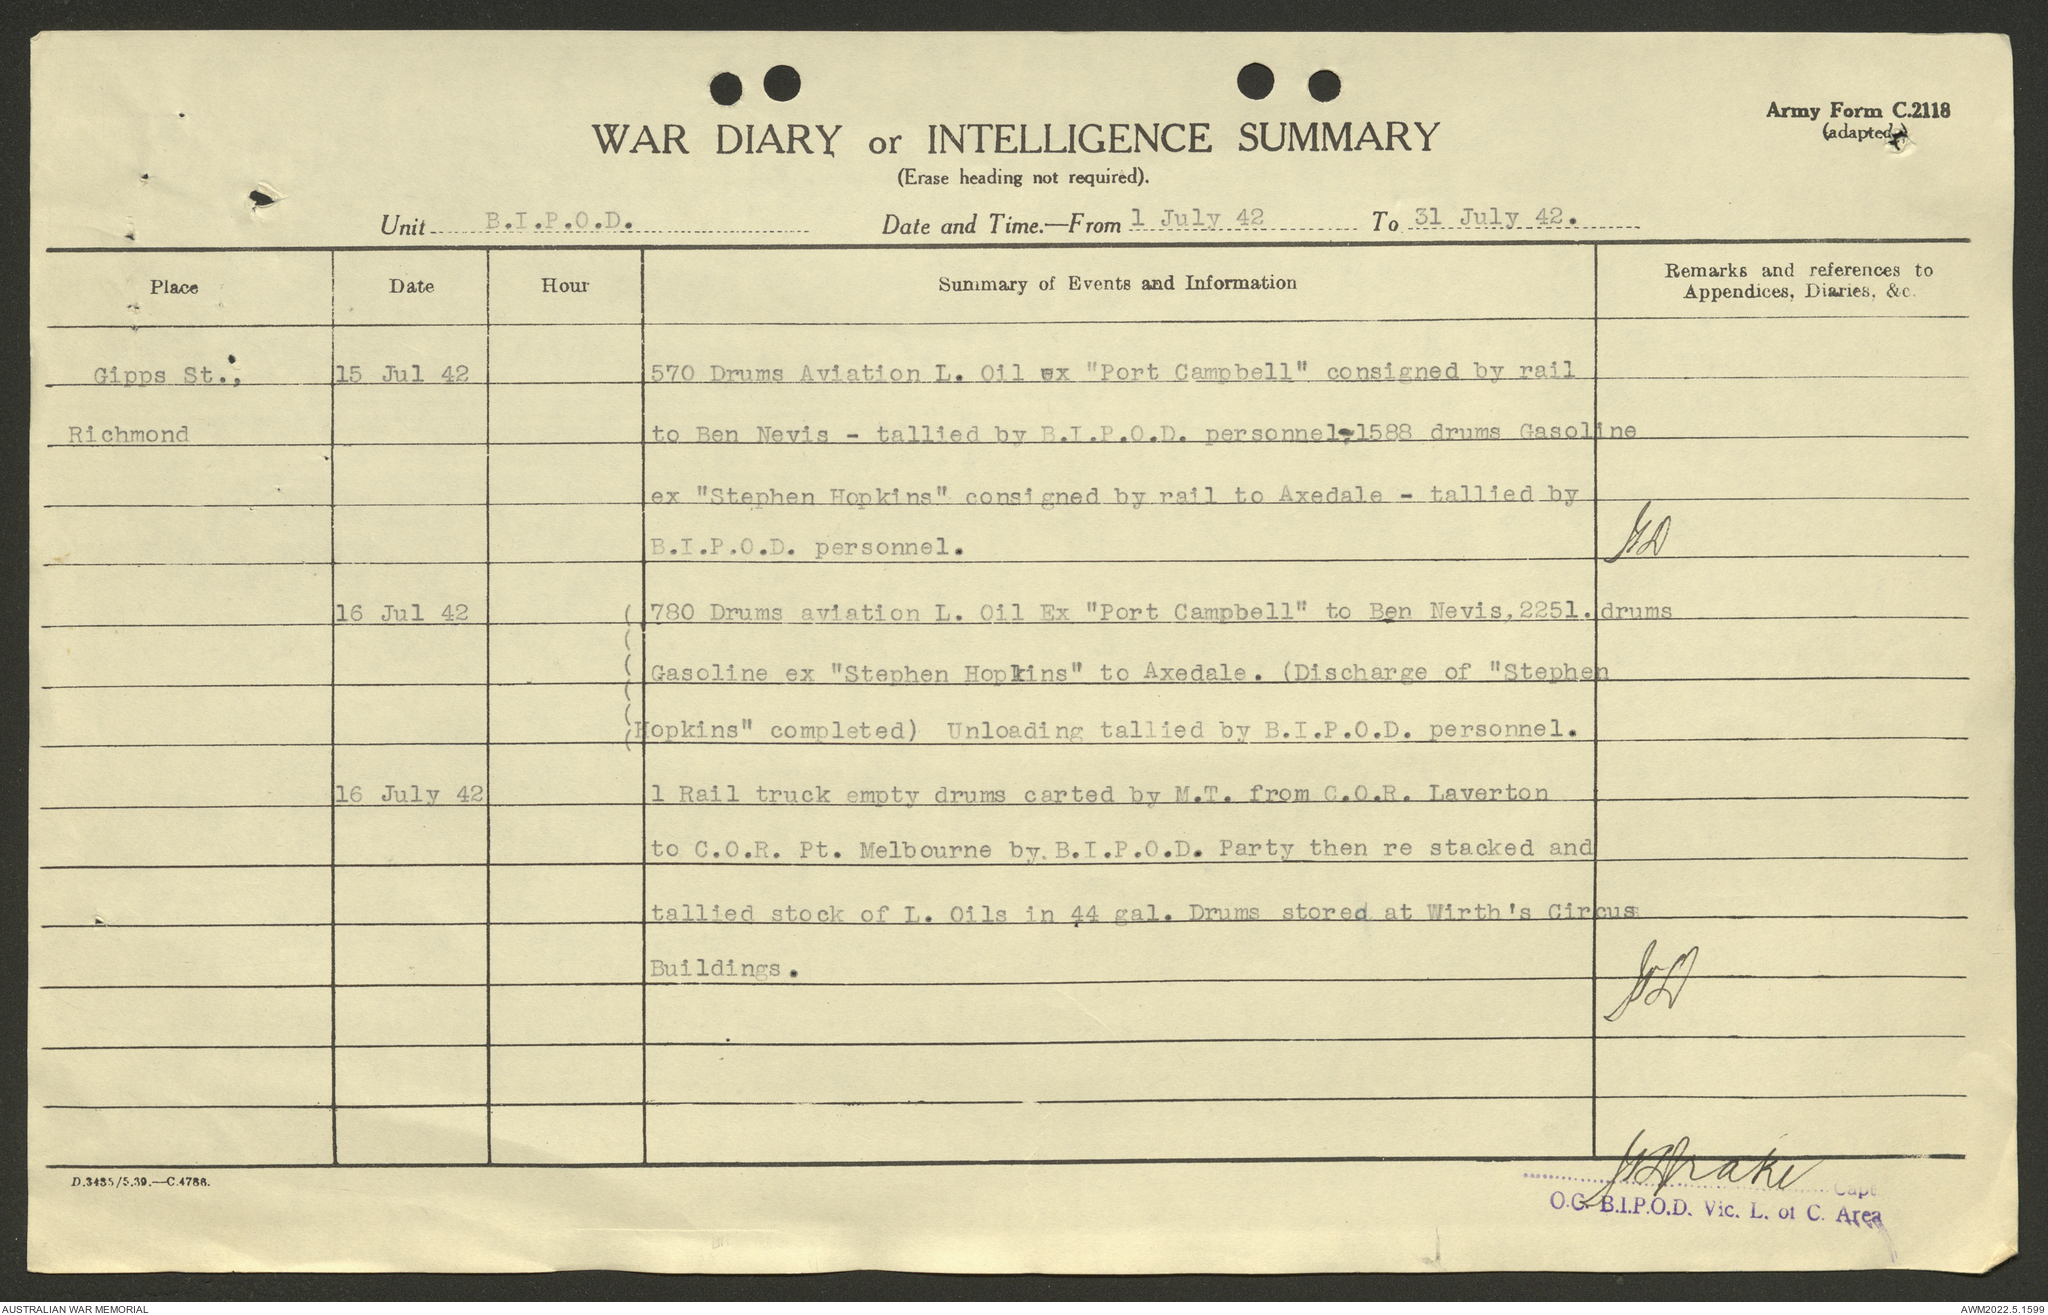 Army Form C.2118
(adapted)
WAR DIARY or INTELLIGENCE SUMMARY
(Erase heading not required).
Unit B.I.P.O.D. Date and Time.—From 1 July 42 To 31 July 42.
Place Date Hour Summary of Events and Information Remarks and references to
Appendices, Diaries, &c.
Gipps St., 15 Jul 42 570 Drums Aviation L. Oil ex "Port Campbell" consigned by rail
Richmond to Ben Nevis - tallied by B.I.P.O.D. personnel, 1588 drums Gasoline
ex "Stephen Hopkins" consigned by rail to Axedale - tallied by
B.I.P.O.D. personnel.
16 Jul 42 780 Drums aviation L. Oil Ex "Port Campbell" to Ben Nevis, 2251. drums
Gasoline ex "Stephen Hopkins" to Axedale. (Discharge of "Stephen
Hopkins" completed) Unloading tallied by B.I.P.O.D. personnel.
16 July 42 1 Rail truck empty drums carted by M.T. from C.O.R. Laverton
to C.O.R. Pt. Melbourne by B.I.P.O.D. Party then re stacked and
tallied stock of L. Oils in 44 gal. Drums stored at Wirth's Circus
Buildings.
Drake
Capt
D.3485/5.39.—C.4786.
O.C. B.I.P.O.D. Vic. L. of C. Area
AUSTRALIAN WAR MEMORIAL AWM2022.5.1599